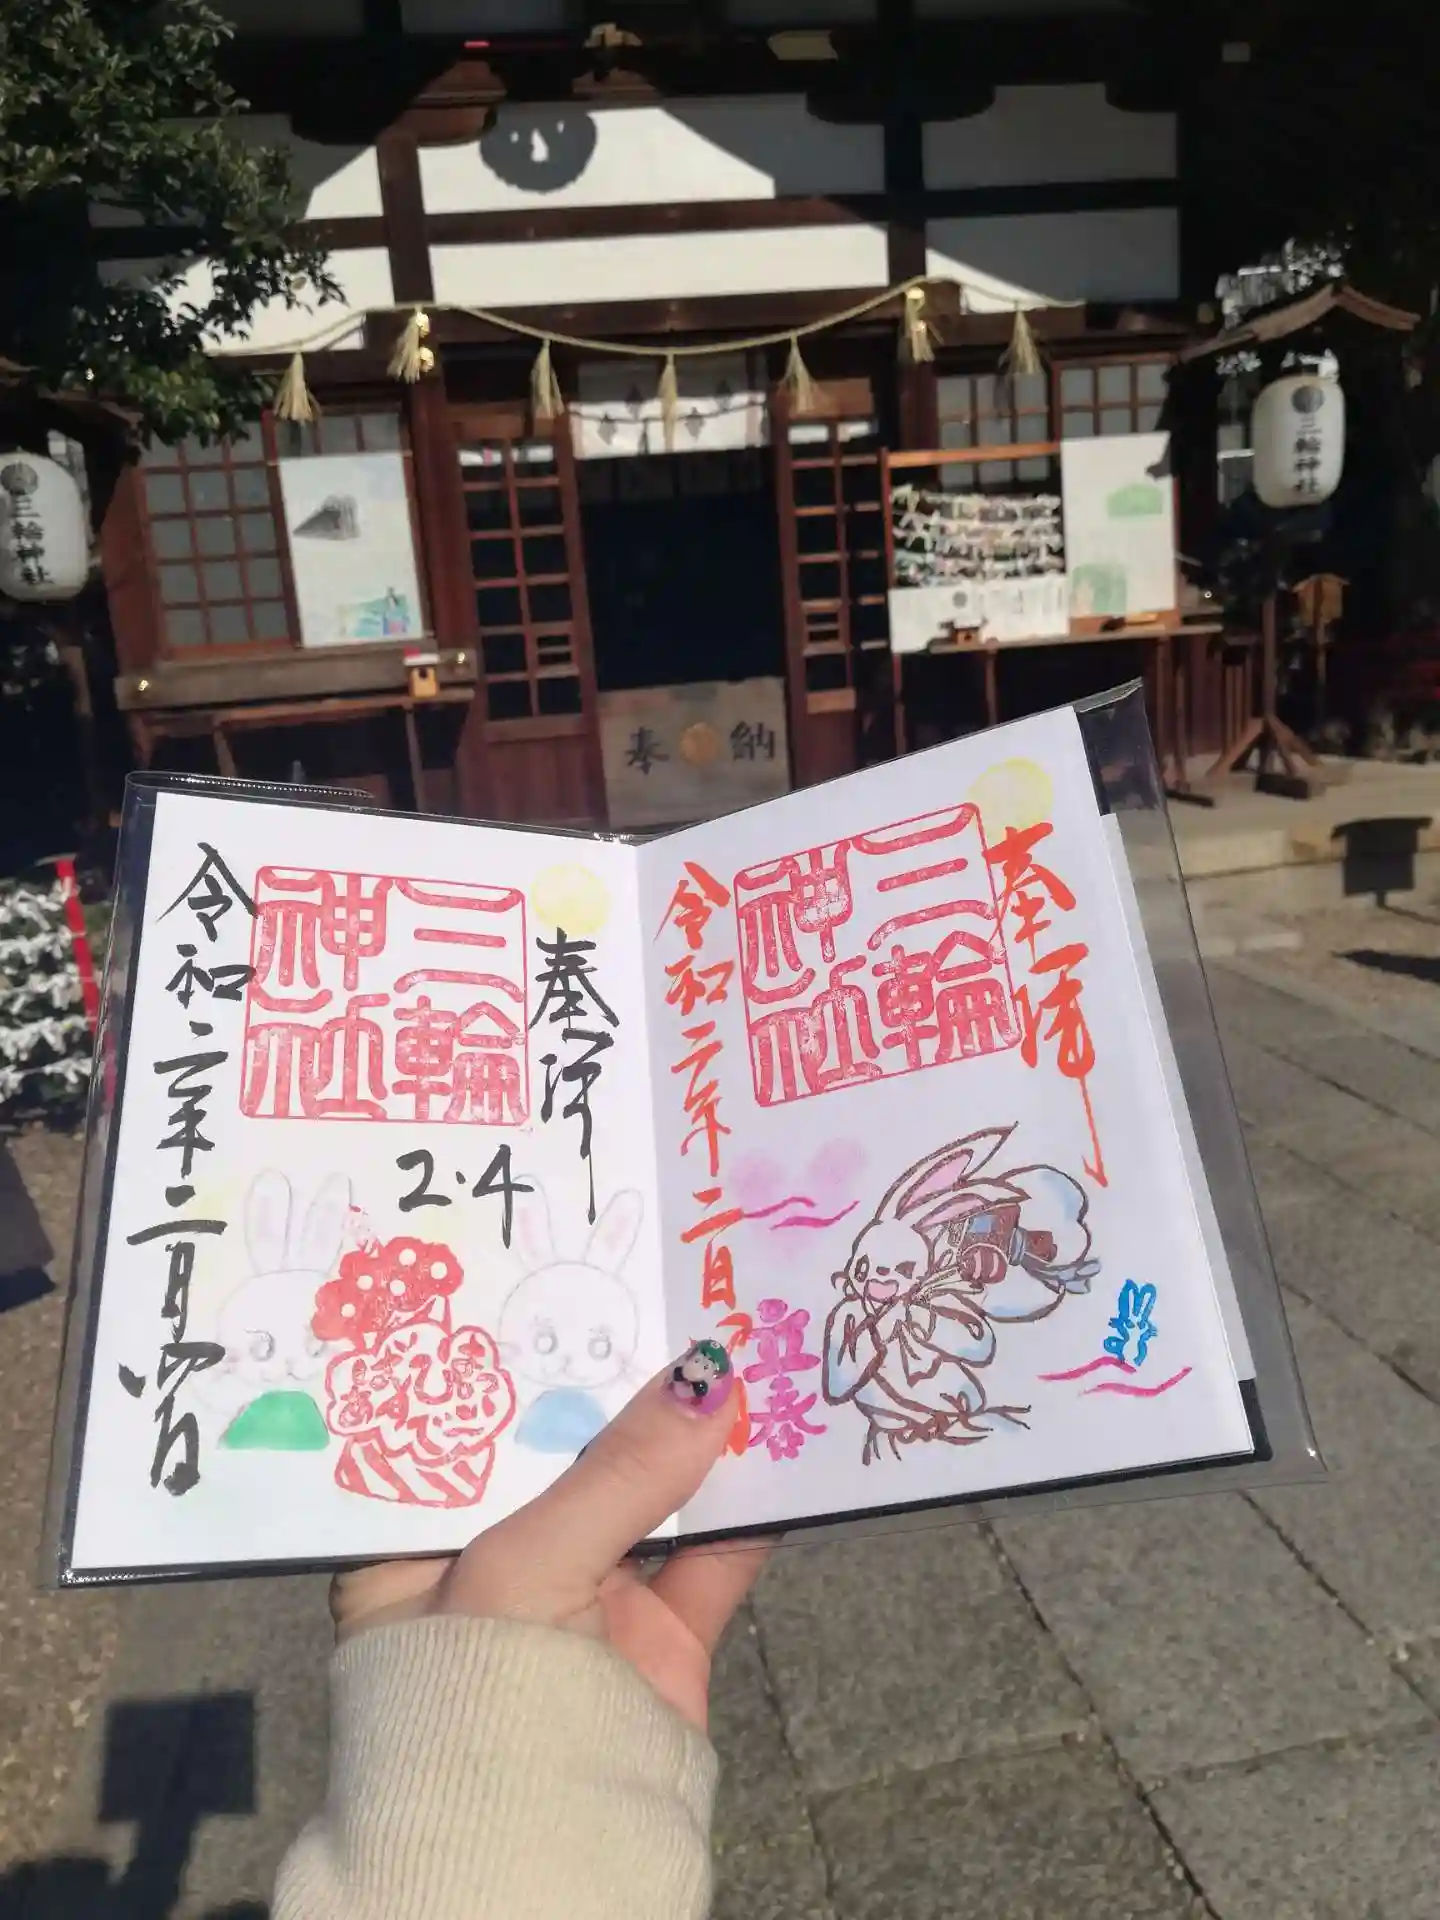 三輪神社
三輪神社
奉 納
奉拝
三輪神社
令和二年二月四日
2.4
奉拝
三輪神社
令和二年二月
立春